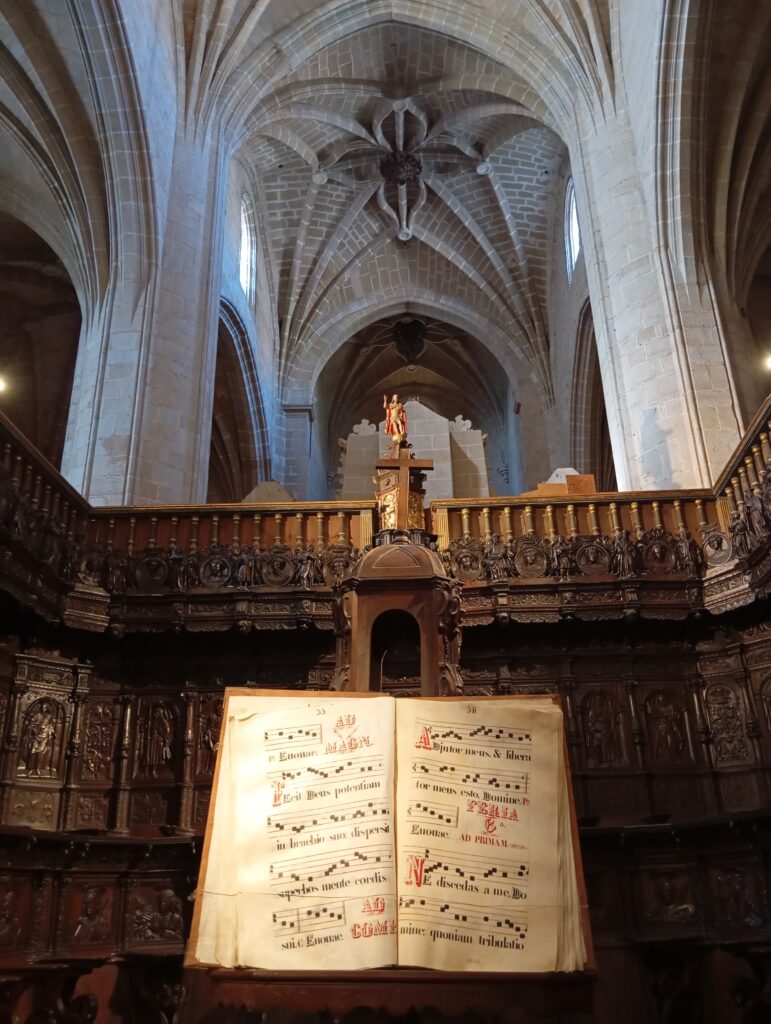 35
AD
Euouae. MAGN.
FEcit Deus potentiam
in brachio suo: dispersit
superbos mente cordis
AD
sui. Euouae. COM
36
ADjutor meus, & libera
tor meus esto, Domine.
FERIA
6a.
Euouae. AD PRIMAM.
NE discedas a me, Do
mine: quoniam tribulatio